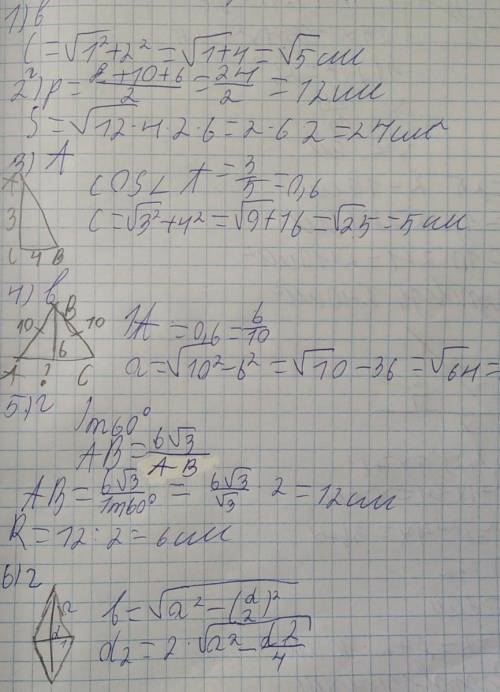 1) в
C = √1² + 2² = √1+4 = √5 см
2) г p = 8+10+6/2 = 24/2 = 12 см
S = √12·4·2·6 = 2·6 2 = 24 см²
3) A
A
3
C 4 B
cos∠A = 3/5 = 0,6
C = √3²+4² = √9+16 = √25 = 5 см
4) в
B
10 10
6
A ? C
A = 0,6 = 6/10
a = √10²-6² = √10-36 = √64 =
5) г
60°
AB = 6√3/AB
AB = 6√3/60° = 6√3/√3 · 2 = 12 см
R = 12 : 2 = 6 см
6) г
a
d
b = √a² - (d/2)²
d₂ = 2·√a² - d²/4